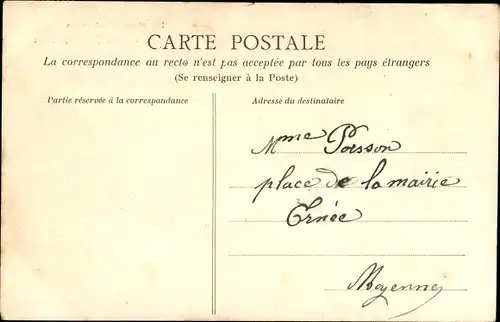 CARTE POSTALE
La correspondance au recto n'est pas acceptée par tous les pays étrangers
(Se renseigner à la Poste)
Partie réservée à la correspondance
Adresse du destinataire
Mme Poisson
place de la mairie
Ernée
Mayenne